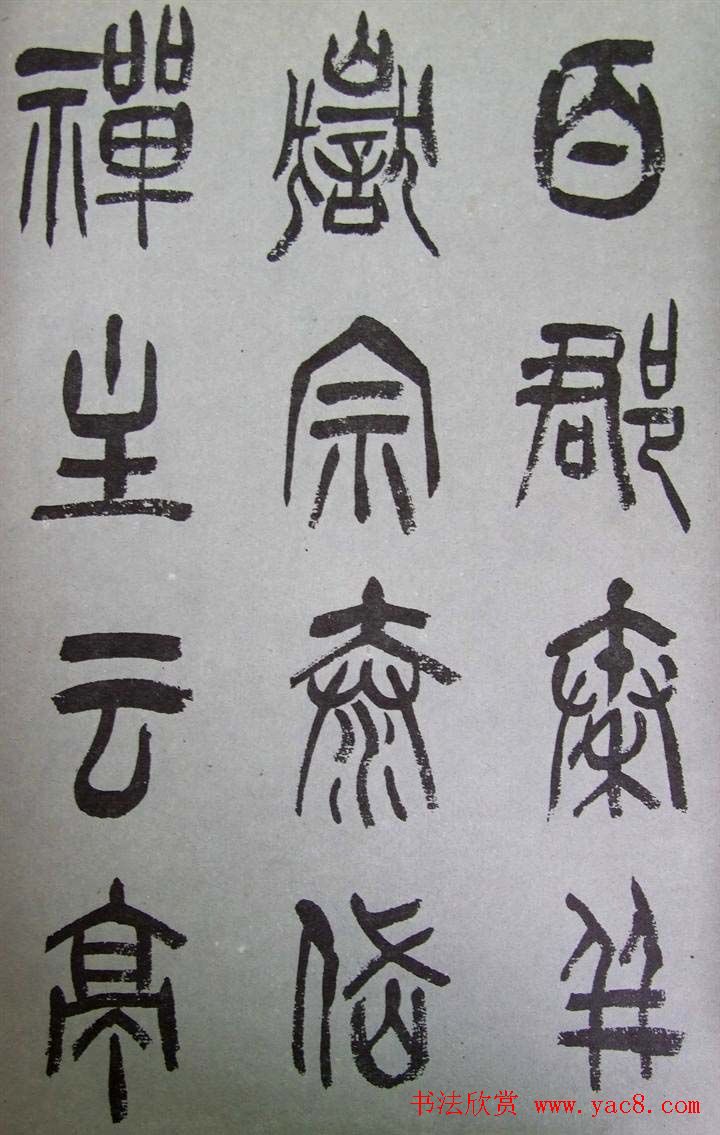 百郡秦并
嶽宗泰岱
禪主云亭
书法欣赏 www.yac8.com